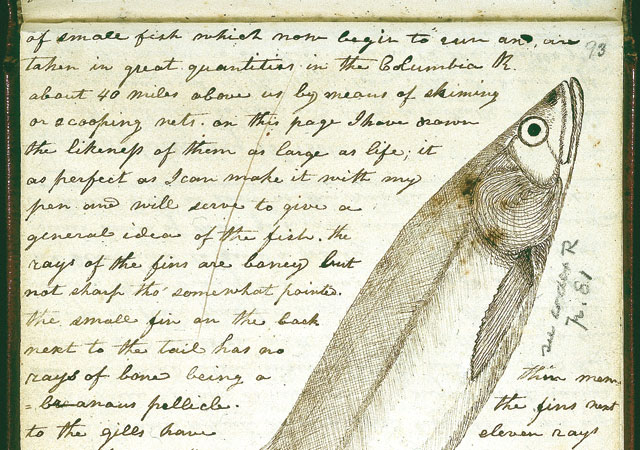 of small fish which now begin to run and, are
93
taken in great quantities in the Columbia R.
about 40 miles above us by means of skiming
or scooping nets. on this page I have drawn
the likeness of them as large as life; it
as perfect as I can make it with my
pen and will serve to give a
general idea of the fish. the
rays of the fins are boney but
not sharp tho' somewhat pointed.
the small fin on the back
next to the tail has no
rays of bone being a thin mem
= branous pellicle. the fins next
to the gills have eleven rays
see codex R
p. 81